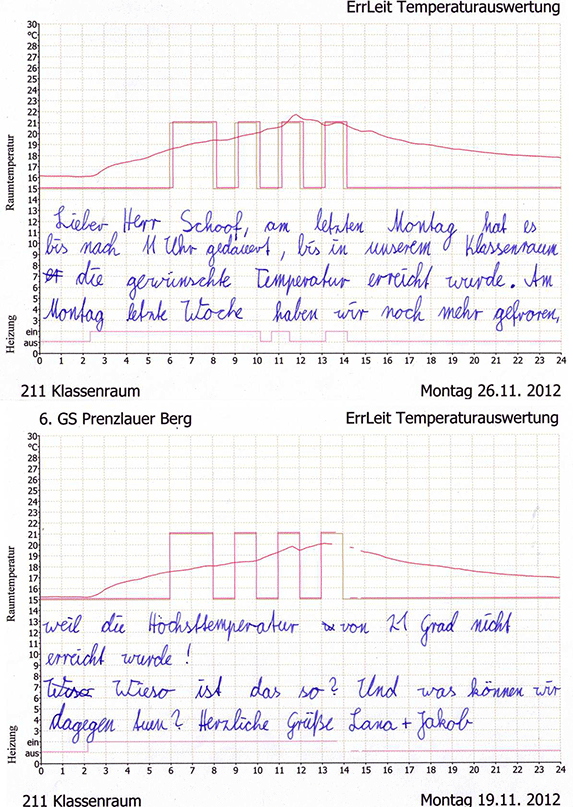 ErrLeit Temperaturauswertung
30
°C
29
28
27
26
25
24
23
22
21
20
19
18
17
16
15
14
13
12
11
10
9
8
7
6
5
4
3
ein
aus
0
Raumtemperatur
Heizung
Lieber Herr Schoof, am letzten Montag hat es
bis nach 11 Uhr gedauert, bis in unserem Klassenraum
die gewünschte Temperatur erreicht wurde. Am
Montag letzte Woche haben wir noch mehr gefroren,
0 1 2 3 4 5 6 7 8 9 10 11 12 13 14 15 16 17 18 19 20 21 22 23 24
211 Klassenraum Montag 26.11. 2012
6. GS Prenzlauer Berg ErrLeit Temperaturauswertung
30
°C
29
28
27
26
25
24
23
22
21
20
19
18
17
16
15
14
13
12
11
10
9
8
7
6
5
4
3
ein
aus
0
Raumtemperatur
Heizung
weil die Höchsttemperatur von 21 Grad nicht
erreicht wurde!
Wieso ist das so? Und was können wir
dagegen tuen? Herzliche Grüße Lana + Jakob
0 1 2 3 4 5 6 7 8 9 10 11 12 13 14 15 16 17 18 19 20 21 22 23 24
211 Klassenraum Montag 19.11. 2012